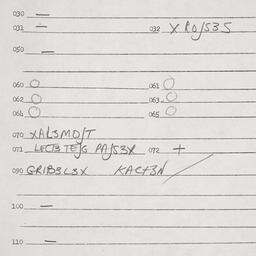 030 —
031 — 032 X ROJS35
050 —
060 O 061 O
062 O 063 O
064 O 065 O
070 XAL3MOJT
071 LECTB TEJG PAJS3X 072 +
090 GRIB3L3X KACT3N /
100 —
110 —